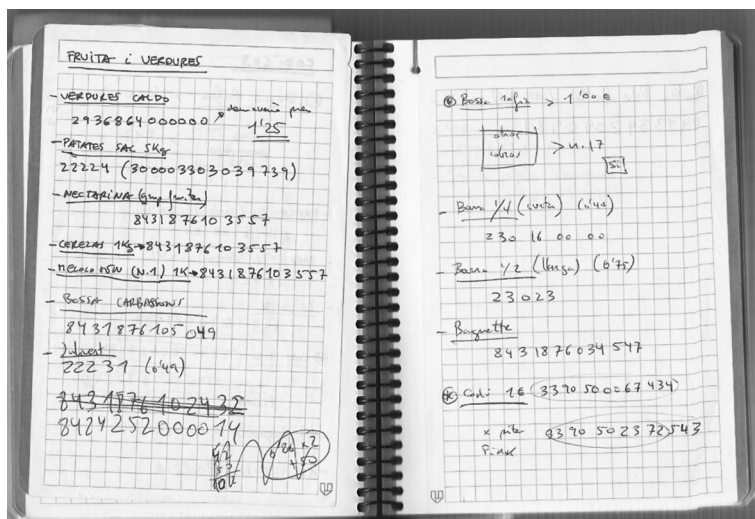 FRUITA i VERDURES
- VERDURES CALDO
2936864000000
1'25
- PATATES SAC 5Kg
22224 (300003303039739)
- NECTARINA
8431876103557
- CEREZAS 1Kg → 8431876103557
- MELOCOTON (N.1) 1K → 8431876103557
- BOSSA CARBASSONS
8431876105049
- Julivert
22231 (0'49)
8431876102432
8424252000014
Bossa > 1'00 €
otros
idiomas
> n.17
Si
- Barra 1/4 (curta) (0'45)
230 16 00 00
- Barra 1/2 (llarga) (0'75)
23023
- Baguette
8431876034547
Codi 1€ (3390500067434)
8390502372543